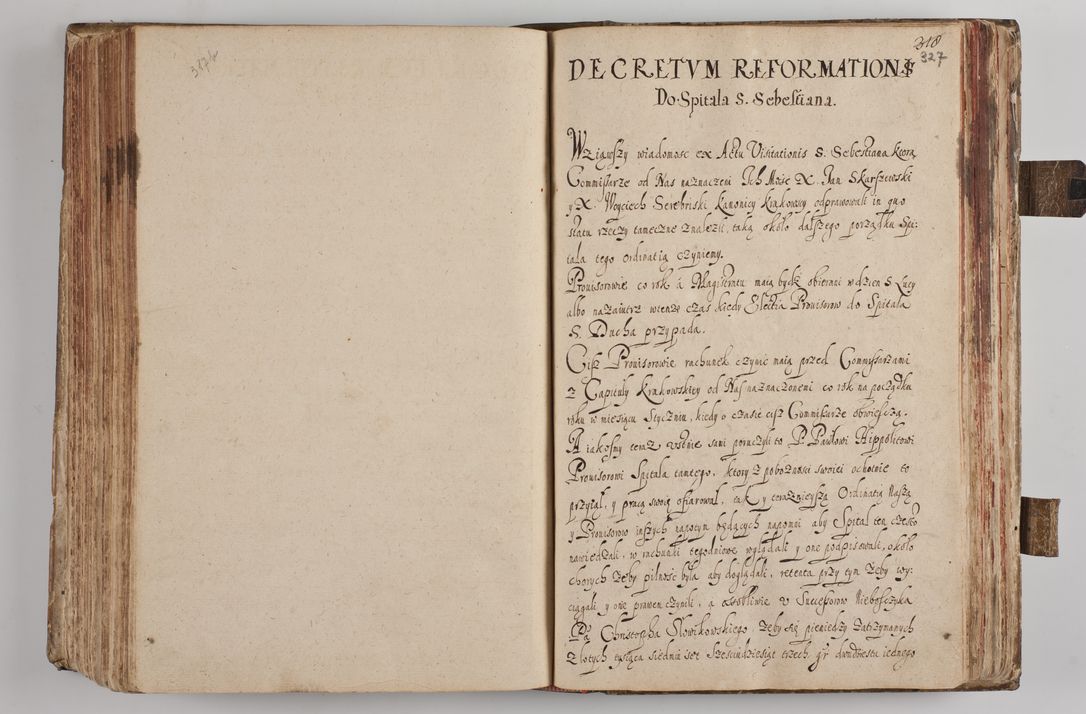 317v
318
327
DECRETVM REFORMATIONIS
Do Spitala S. Sebestiana.
Wziąwszy wiadomosc ex Actu Visitationis S. Sebestiana ktorą
Commissarze od Nas naznaczeni Ich Mośc X. Jan Skarszewski
y X. Woyciech Serebriski Kanonicy Krakowscy odprawowali in quo
statu rzeczy tameczne znalezli, taką około dalszego porządku Spi:
tala tego ordinatią czyniemy.
Prouisorowie co rok à Magistratu maią bydź obierani w dzien S. Lucy
albo nazaiutrz wtenze czas kiedy Electia Prouisorow do Spitala
S. Ducha przypada.
Cisz Prouisorowie rachunek czynic maią przed Commissarzami
z Capituły Krakowskiey od Nas naznaczonemi co rok na początku
roku w miesiącu Styczniu, kiedy o czasie cisz Commissarze obwieszczą.
A iakosmy teraz vstnie sami poruczyli to P. Pawłowi Hippolitowi
Prouisorowi Spitala tamtego, ktory z poboznosci swoiei ochotnie to
przyiął, y pracą swoię ofiarował, tak y teraznieyszą Ordinatią Naszą
y Prouisorow inszych napotym będących napomni aby Spital ten często
nawiedzali, w rachunki tegodniowe wglądali y one podpisowali, około
chorych zeby pilnosc była aby doglądali, retenta przy tym zeby wy:
ciągali y one prawem czynili, a osobliwie v Successorow Nieboszczyka
Pa Christopha Słowikowskiego, zeby się pieniedzy zatrzymanych
złotych tysiąca siedmi set szescidziesiąt trzech, gr dwudziestu iednego